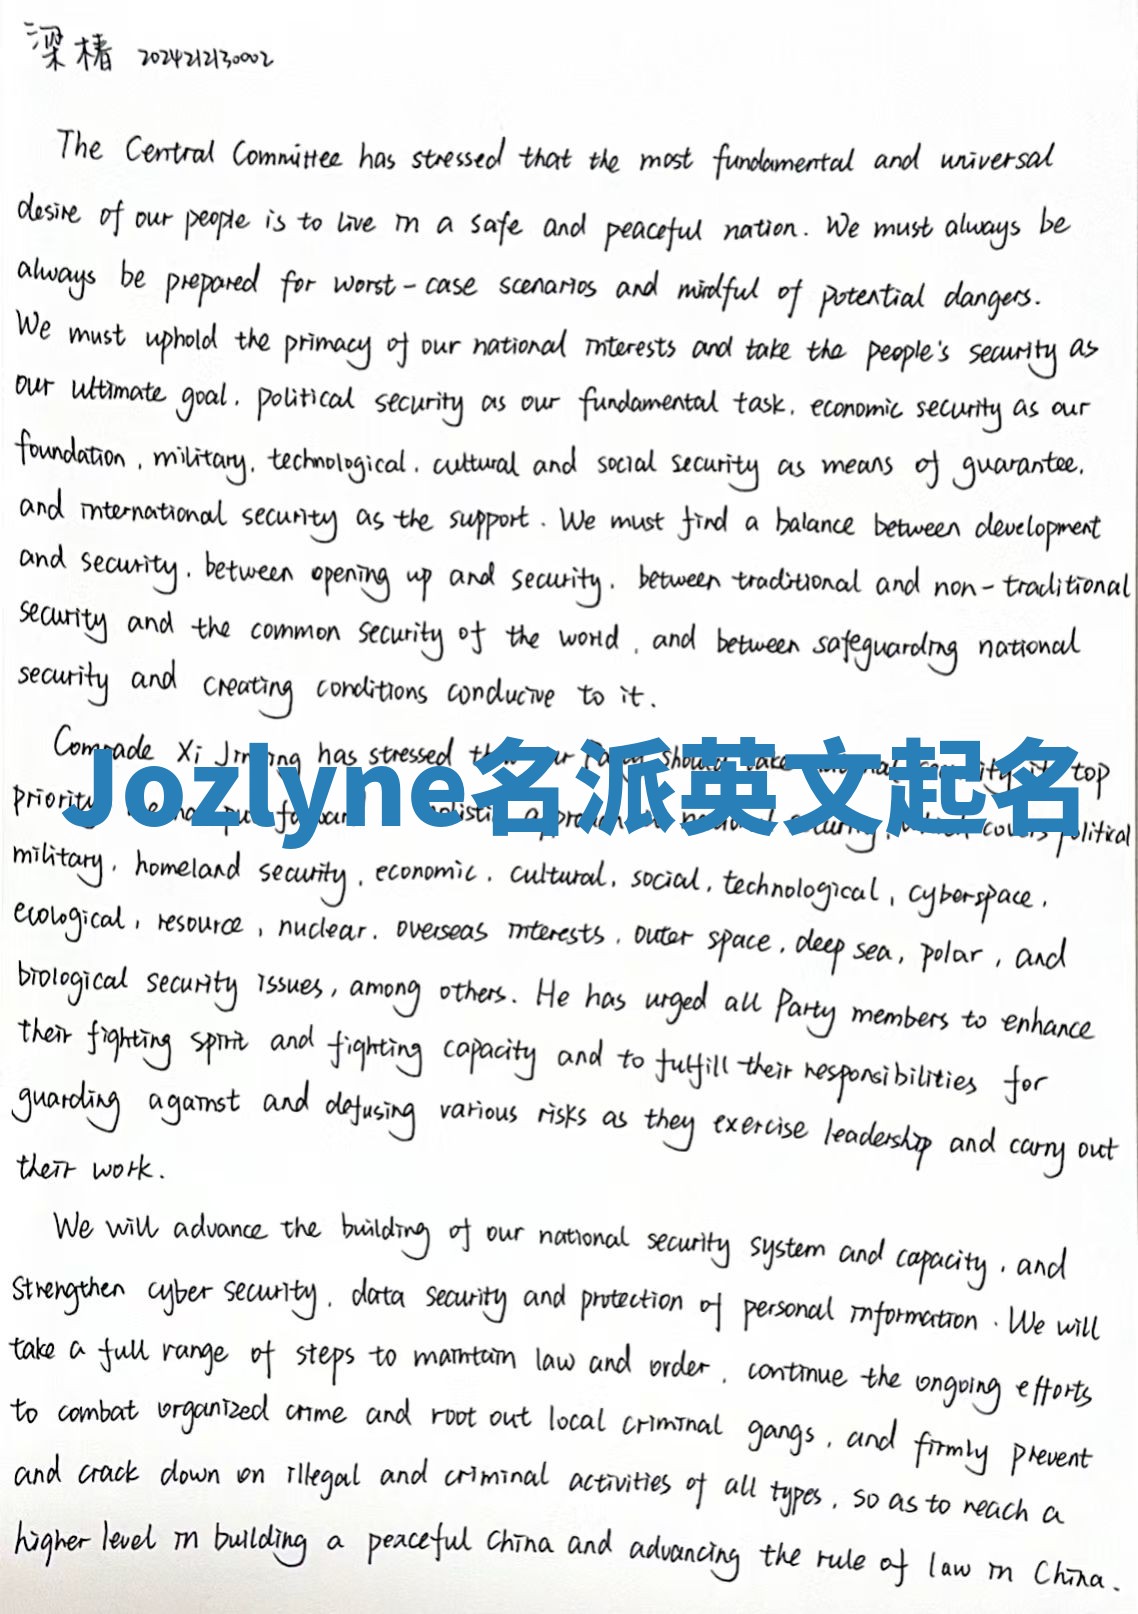 梁椿 2024212130002
The Central Committee has stressed that the most fundamental and universal
desire of our people is to live in a safe and peaceful nation. We must always be
always be prepared for worst-case scenarios and mindful of potential dangers.
We must uphold the primacy of our national interests and take the people's security as
our ultimate goal, political security as our fundamental task, economic security as our
foundation, military, technological, cultural and social security as means of guarantee,
and international security as the support. We must find a balance between development
and security, between opening up and security, between traditional and non-traditional
security and the common security of the world, and between safeguarding national
security and creating conditions conducive to it.
Comrade Xi Jinping has stressed our Party should take security top
Jozlyne名派英文起名
priority approach national security, which covers political
military, homeland security, economic, cultural, social, technological, cyberspace,
ecological, resource, nuclear, overseas interests, outer space, deep sea, polar, and
biological security issues, among others. He has urged all Party members to enhance
their fighting spirit and fighting capacity and to fulfill their responsibilities for
guarding against and defusing various risks as they exercise leadership and carry out
their work.
We will advance the building of our national security system and capacity, and
strengthen cyber security, data security and protection of personal information. We will
take a full range of steps to maintain law and order, continue the ongoing efforts
to combat organized crime and root out local criminal gangs, and firmly prevent
and crack down on illegal and criminal activities of all types, so as to reach a
higher level in building a peaceful China and advancing the rule of law in China.